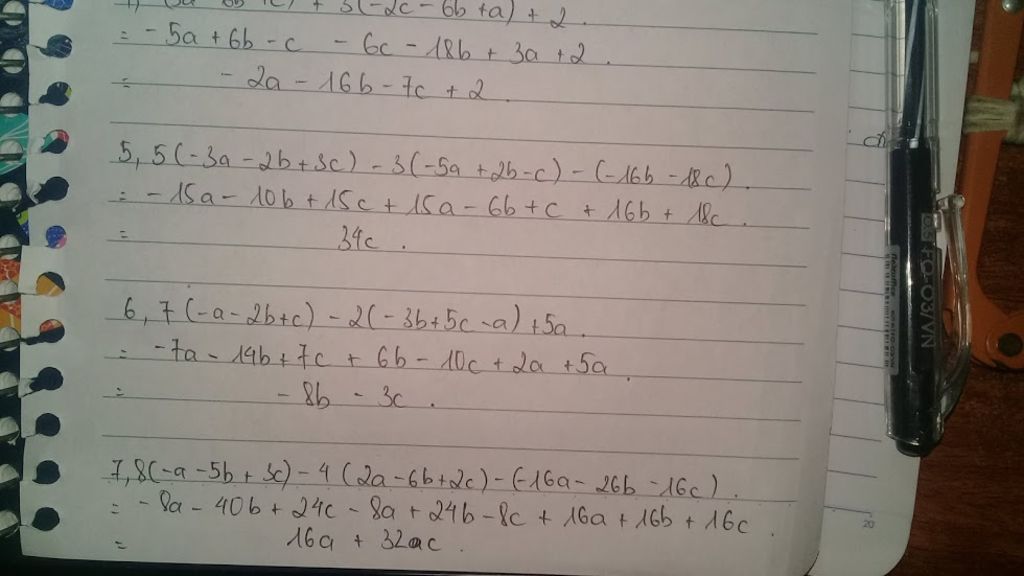 + 3(-2c - 6b + a) + 2.
= -5a + 6b - c - 6c - 18b + 3a + 2.
= -2a - 16b - 7c + 2.
5, 5(-3a - 2b + 3c) - 3(-5a + 2b - c) - (-16b - 18c).
= -15a - 10b + 15c + 15a - 6b + c + 16b + 18c.
= 34c.
6, 7(-a - 2b + c) - 2(-3b + 5c - a) + 5a.
= -7a - 14b + 7c + 6b - 10c + 2a + 5a.
= -8b - 3c.
7, 8(-a - 5b + 3c) - 4(2a - 6b + 2c) - (-16a - 26b - 16c).
= -8a - 40b + 24c - 8a + 24b - 8c + 16a + 16b + 16c.
= 16a + 32ac.
20